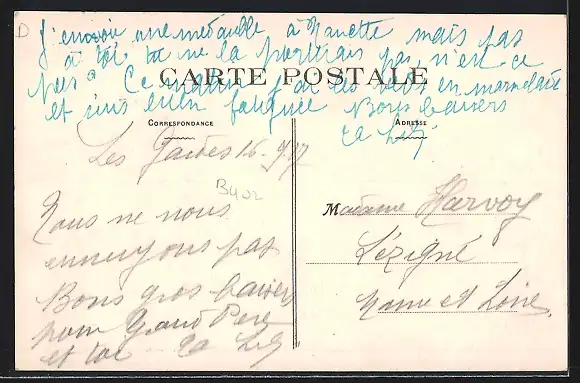 D
J'envoie une médaille à Nanette mais pas
à toi, tu ne la porterais pas, n'en-ce
pas? Ce matin j'ai les yeux en marmelade
CARTE POSTALE
et suis bien fatiguée Bons baisers
Ta
CORRESPONDANCE
ADRESSE
Les 16-9-17
B402
Nous ne nous
ennuyons pas
Bons gros baisers
pour Grand Père
et toi Ta
Madame Harvoy
Lézigné
Maine et Loire